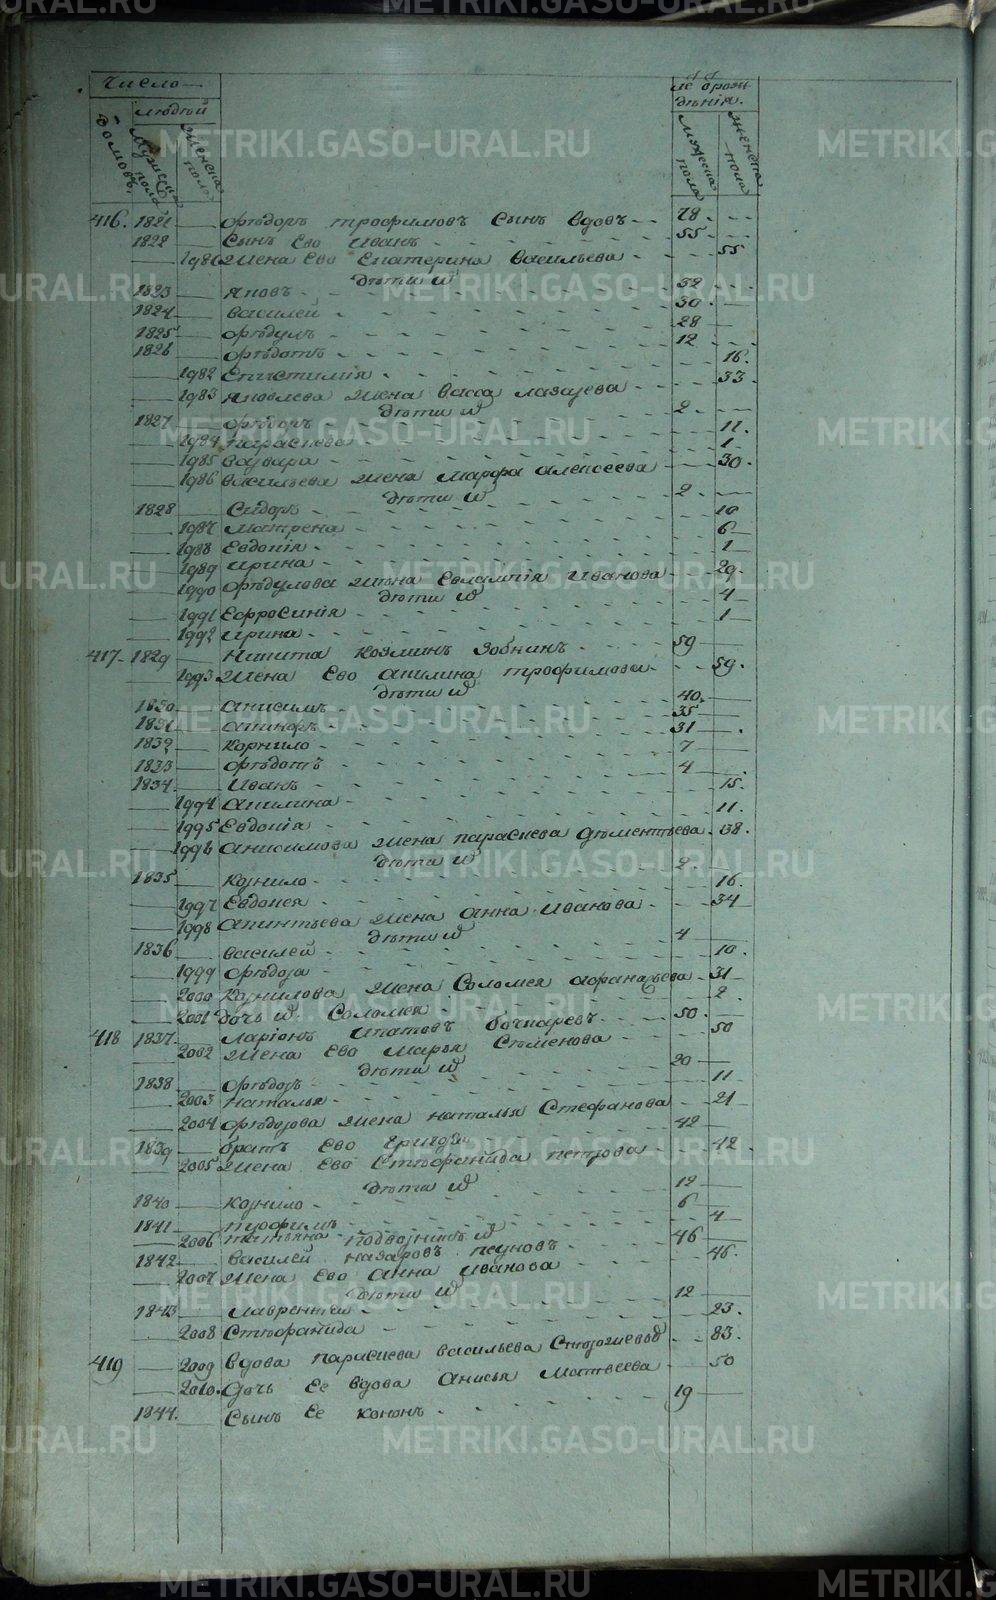 Число
людей
домовъ.
Мужеска пола
Женска пола
рожденія.
Мужеска пола
Женска пола
416. 1821 — Ѳѣдоръ трофимовъ сынъ вдовъ 78.
1822 — Сынъ Ево Иванъ 55
— 1981 Жена Ево Екатерина Васильева 55
Дѣти ихъ
1823 — Яковъ 32
1824 — Василей 30
1825 — Ѳѣдулъ 28
1826 — Ѳѣдотъ 12
— 1982 Епистимия 16.
— 1983 Яковлева жена Васса Лазарева 33
Дѣти ихъ
1827 — Ѳѣдоръ 2
— 1984 Парасковья 11.
— 1985 Варвара 1
— 1986 Васильева жена Марфа Алексеева 30.
Дѣти ихъ
1828 — Сидоръ 2
— 1987 Матрена 10
— 1988 Евдокія 6
— 1989 Ирина 1
— 1990 Ѳѣдулова жена Евлампія Иванова 29.
Дѣти ихъ
— 1991 Ефросинія 4
— 1992 Ирина 1
417 1829 — Никита Козминъ Зобнинъ 59
— 1993 Жена Ево Акилина трофимова 59.
Дѣти ихъ
1830 — Анисимъ 40.
1831 — 35
1832 — Корнило 31
1833 — Ѳѣдотъ 7
1834 — Иванъ 4
— 1994 Акилина 15.
— 1995 Евдокія 11.
— 1996 Анисимова жена Параскева Дѣментьева 38.
Дѣти ихъ
1835 — Корнило 2
— 1997 Евдокея 16.
— 1998 жена Анна Иванова 34
Дѣти ихъ
1836 — Василей 4
— 1999 Ѳѣдора 10.
— 2000 Корнилова жена Соломея Афанасьева 31
— 2001 дочь ихъ Соломея 2
418 1837 — Ларіонъ Ипатовъ Бочкаревъ 50
— 2002 Жена Ево Марья Сѣменова 50
Дѣти ихъ
1838 — Ѳѣдоръ 20
— 2003 Наталья 11
— 2004 Ѳѣдорова жена Наталья Стефанова 21
1839 — братъ Ево Григорей 42
— 2005 Жена Ево Стѣфанида Петрова 42
Дѣти ихъ
1840 — Корнило 12
1841 — трофимъ 6
— 2006 татьяна 4
Подворникъ ихъ
1842 — Василей Назаровъ 46
— 2007 Жена Ево Анна Иванова 46.
Дѣти ихъ
1843 — Лаврентей 12
— 2008 Стѣфанида 23.
419 — 2009 Вдова Параскева Васильева 83.
— 2010. Дочь Ее вдова Анисья Матвеева 50
1844 — Сынъ Ее Кононъ 19
METRIKI.GASO-URAL.RU